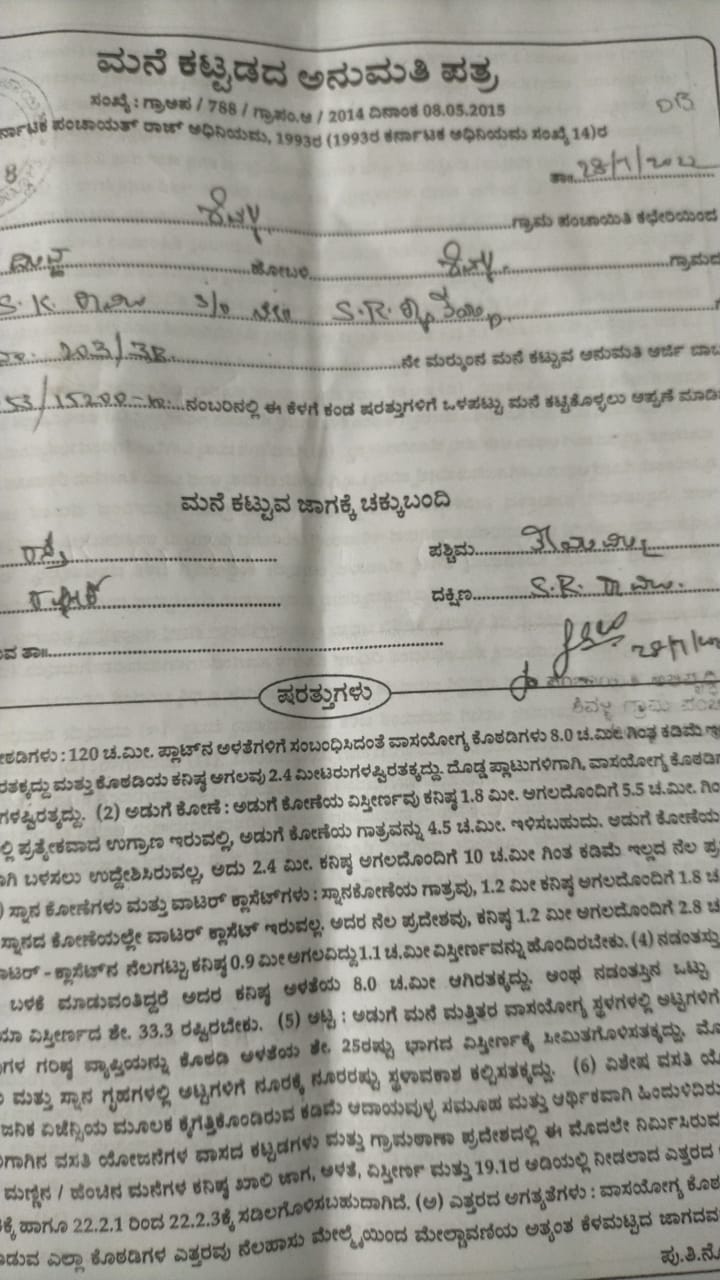 ಮನೆ ಕಟ್ಟಡದ ಅನುಮತಿ ಪತ್ರ
ಸಂಖ್ಯೆ : ಗ್ರಾಅಪ / 788 / ಗ್ರಾಪಂ.ಅ / 2014 ದಿನಾಂಕ 08.05.2015
ರ್ನಾಟಕ ಪಂಚಾಯತ್ ರಾಜ್ ಅಧಿನಿಯಮ, 1993ರ (1993ರ ಕರ್ನಾಟಕ ಅಧಿನಿಯಮ ಸಂಖ್ಯೆ 14)ರ
DB
8
ತಾ॥ 28/1/2022
ಗ್ರಾಮ ಪಂಚಾಯಿತಿ ಕಛೇರಿಯಿಂದ
ಹೋಬಳಿ ಗ್ರಾಮದ
S.K. S/o S.R.
203/3B ನೇ ಮಜ್ಕೂರಿನ ಮನೆ ಕಟ್ಟುವ ಅನುಮತಿ ಅರ್ಜಿ ಬಾಬ
53/15200 ನಂಬರಿನಲ್ಲಿ ಈ ಕೆಳಗೆ ಕಂಡ ಷರತ್ತುಗಳಿಗೆ ಒಳಪಟ್ಟು ಮನೆ ಕಟ್ಟಿಕೊಳ್ಳಲು ಅಪ್ಪಣೆ ಮಾಡಿ
ಮನೆ ಕಟ್ಟುವ ಜಾಗಕ್ಕೆ ಚಕ್ಕುಬಂದಿ
ರಸ್ತೆ ಪಶ್ಚಿಮ
ದಕ್ಷಿಣ S.R.
ವ ತಾ॥
28/1/
ಷರತ್ತುಗಳು
ಗ್ರಾಮ ಪಂಚ
ಠಡಿಗಳು : 120 ಚ.ಮೀ. ಪ್ಲಾಟ್‌ನ ಅಳತೆಗಳಿಗೆ ಸಂಬಂಧಿಸಿದಂತೆ ವಾಸಯೋಗ್ಯ ಕೊಠಡಿಗಳು 8.0 ಚ.ಮೀ ಗಿಂತ ಕಡಿಮೆ ಇ
ರತಕ್ಕದ್ದು ಮತ್ತು ಕೊಠಡಿಯ ಕನಿಷ್ಠ ಅಗಲವು 2.4 ಮೀಟರುಗಳಷ್ಟಿರತಕ್ಕದ್ದು. ದೊಡ್ಡ ಪ್ಲಾಟುಗಳಿಗಾಗಿ, ವಾಸಯೋಗ್ಯ ಕೊಠಡಿ
ಗಳಷ್ಟಿರತ್ಕದ್ದು. (2) ಅಡುಗೆ ಕೋಣೆ : ಅಡುಗೆ ಕೋಣೆಯ ವಿಸ್ತೀರ್ಣವು ಕನಿಷ್ಠ 1.8 ಮೀ. ಅಗಲದೊಂದಿಗೆ 5.5 ಚ.ಮೀ. ಗಿಂ
ಲ್ಲಿ ಪ್ರತ್ಯೇಕವಾದ ಉಗ್ರಾಣ ಇರುವಲ್ಲಿ, ಅಡುಗೆ ಕೋಣೆಯ ಗಾತ್ರವನ್ನು 4.5 ಚ.ಮೀ. ಇಳಿಸಬಹುದು. ಅಡುಗೆ ಕೋಣೆಯ
ಾಗಿ ಬಳಸಲು ಉದ್ದೇಶಿಸಿರುವಲ್ಲಿ, ಅದು 2.4 ಮೀ. ಕನಿಷ್ಠ ಅಗಲದೊಂದಿಗೆ 10 ಚ.ಮೀ ಗಿಂತ ಕಡಿಮೆ ಇಲ್ಲದ ನೆಲ ಪ್ರ
) ಸ್ನಾನ ಕೋಣೆಗಳು ಮತ್ತು ವಾಟರ್ ಕ್ಲಾಸೆಟ್‌ಗಳು : ಸ್ನಾನಕೋಣೆಯ ಗಾತ್ರವು, 1.2 ಮೀ ಕನಿಷ್ಠ ಅಗಲದೊಂದಿಗೆ 1.8 ಚ
ಸ್ನಾನದ ಕೋಣೆಯಲ್ಲೇ ವಾಟರ್ ಕ್ಲಾಸೆಟ್ ಇರುವಲ್ಲಿ, ಅದರ ನೆಲ ಪ್ರದೇಶವು, ಕನಿಷ್ಠ 1.2 ಮೀ ಅಗಲದೊಂದಿಗೆ 2.8 ಚ
ಾಟರ್ - ಕ್ಲಾಸೆಟ್‌ನ ನೆಲಗಟ್ಟು ಕನಿಷ್ಠ 0.9 ಮೀ ಅಗಲವಿದ್ದು 1.1 ಚ.ಮೀ ವಿಸ್ತೀರ್ಣವನ್ನು ಹೊಂದಿರಬೇಕು. (4) ನಡಂತಸ್ತು
ಬಳಕೆ ಮಾಡುವಂತಿದ್ದರೆ ಅದರ ಕನಿಷ್ಠ ಅಳತೆಯ 8.0 ಚ.ಮೀ ಆಗಿರತಕ್ಕದ್ದು. ಅಂಥ ನಡಂತಸ್ತಿನ ಒಟ್ಟು
ವಿಸ್ತೀರ್ಣದ ಶೇ. 33.3 ರಷ್ಟಿರಬೇಕು. (5) ಅಟ್ಟ : ಅಡುಗೆ ಮನೆ ಮತ್ತಿತರ ವಾಸಯೋಗ್ಯ ಸ್ಥಳಗಳಲ್ಲಿ ಅಟ್ಟಗಳಿಗೆ
ಗಳ ಗರಿಷ್ಠ ವ್ಯಾಪ್ತಿಯನ್ನು ಕೊಠಡಿ ಅಳತೆಯ ಶೇ. 25ರಷ್ಟು ಭಾಗದ ವಿಸ್ತೀರ್ಣಕ್ಕೆ ಸೀಮಿತಗೊಳಿಸತಕ್ಕದ್ದು.
ಮತ್ತು ಸ್ನಾನ ಗೃಹಗಳಲ್ಲಿ ಅಟ್ಟಗಳಿಗೆ ನೂರಕ್ಕೆ ನೂರರಷ್ಟು ಸ್ಥಳಾವಕಾಶ ಕಲ್ಪಿಸತಕ್ಕದ್ದು. (6) ವಿಶೇಷ ವಸತಿ ಯೋ
ಜನಿಕ ಏಜೆನ್ಸಿಯ ಮೂಲಕ ಕೈಗೆತ್ತಿಕೊಂಡಿರುವ ಕಡಿಮೆ ಆದಾಯವುಳ್ಳ ಸಮೂಹ ಮತ್ತು ಆರ್ಥಿಕವಾಗಿ ಹಿಂದುಳಿದಿರು
ಗಾಗಿನ ವಸತಿ ಯೋಜನೆಗಳ ವಾಸದ ಕಟ್ಟಡಗಳು ಮತ್ತು ಗ್ರಾಮಠಾಣಾ ಪ್ರದೇಶದಲ್ಲಿ ಈ ಮೊದಲೇ ನಿರ್ಮಿಸಿರುವ
ಮಣ್ಣಿನ / ಹೆಂಚಿನ ಮನೆಗಳ ಕನಿಷ್ಠ ಖಾಲಿ ಜಾಗ, ಅಳತೆ, ವಿಸ್ತೀರ್ಣ ಮತ್ತು 19.1ರ ಅಡಿಯಲ್ಲಿ ನೀಡಲಾದ ಎತ್ತರದ
ಕ್ಕೆ ಹಾಗೂ 22.2.1 ರಿಂದ 22.2.3ಕ್ಕೆ ಸಡಿಲಗೊಳಿಸಬಹುದಾಗಿದೆ. (ಅ) ಎತ್ತರದ ಅಗತ್ಯತೆಗಳು : ವಾಸಯೋಗ್ಯ ಕೊಠ
ಾಡುವ ಎಲ್ಲಾ ಕೊಠಡಿಗಳ ಎತ್ತರವು ನೆಲಹಾಸು ಮೇಲ್ಮೈಯಿಂದ ಮೇಲ್ಛಾವಣಿಯ ಅತ್ಯಂತ ಕೆಳಮಟ್ಟದ ಜಾಗದವ
ಪು.ತಿ.ನೋ